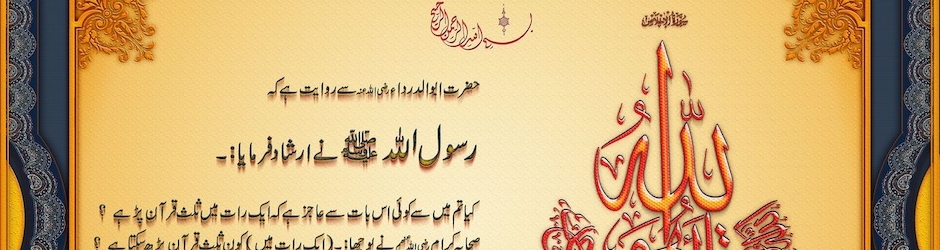 بسم اللہ الرحمن الرحیم
سورۃ الإخلاص
حضرت ابوالدرداء رضی اللہ عنہ سے روایت ہے کہ
رسول اللہ ﷺ نے ارشاد فرمایا :۔
کیا تم میں سے کوئی اس بات سے عاجز ہے کہ ایک رات میں ثلث قرآن پڑھے ؟
صحابہ کرام رضی اللہ عنہم نے پوچھا :۔ ( ایک رات میں ) کون ثلث قرآن پڑھ سکتا ہے ؟
اللہ